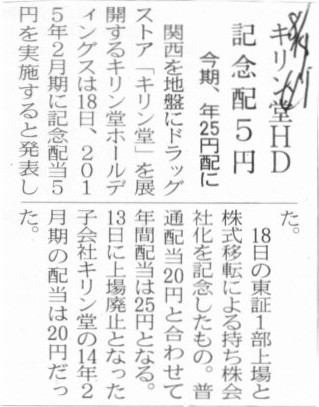 キリン堂HD
記念配5円
今期、年25円配に
関西を地盤にドラッグ
ストア「キリン堂」を展
開するキリン堂ホールデ
ィングスは18日、201
5年2月期に記念配当5
円を実施すると発表し
た。
18日の東証1部上場と
株式移転による持ち株会
社化を記念したもの。普
通配当20円と合わせて
年間配当は25円となる。
13日に上場廃止となった
子会社キリン堂の14年2
月期の配当は20円だっ
た。